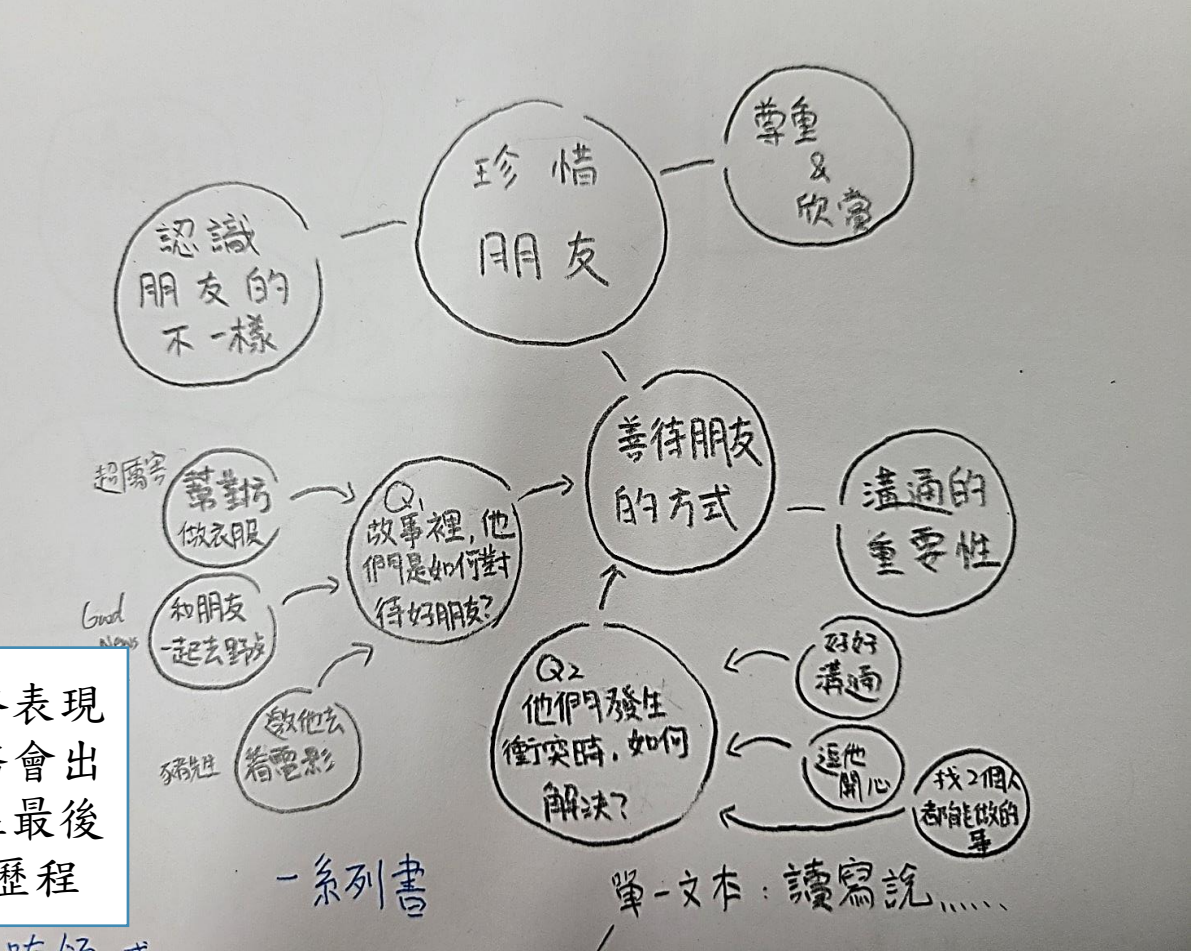 尊重
&
欣賞
珍惜
朋友
認識
朋友的
不一樣
善待朋友
的方式
溝通的
重要性
超厲害
幫對方
做衣服
Good
News
和朋友
一起去野餐
豬先生
邀他去
看電影
Q1
故事裡,他
們是如何對
待好朋友?
Q2
他們發生
衝突時,如何
解決?
好好
溝通
逗他
開心
找2個人
都能做的
事
表現
會出
最後
歷程
一系列書
單一文本:讀寫說......